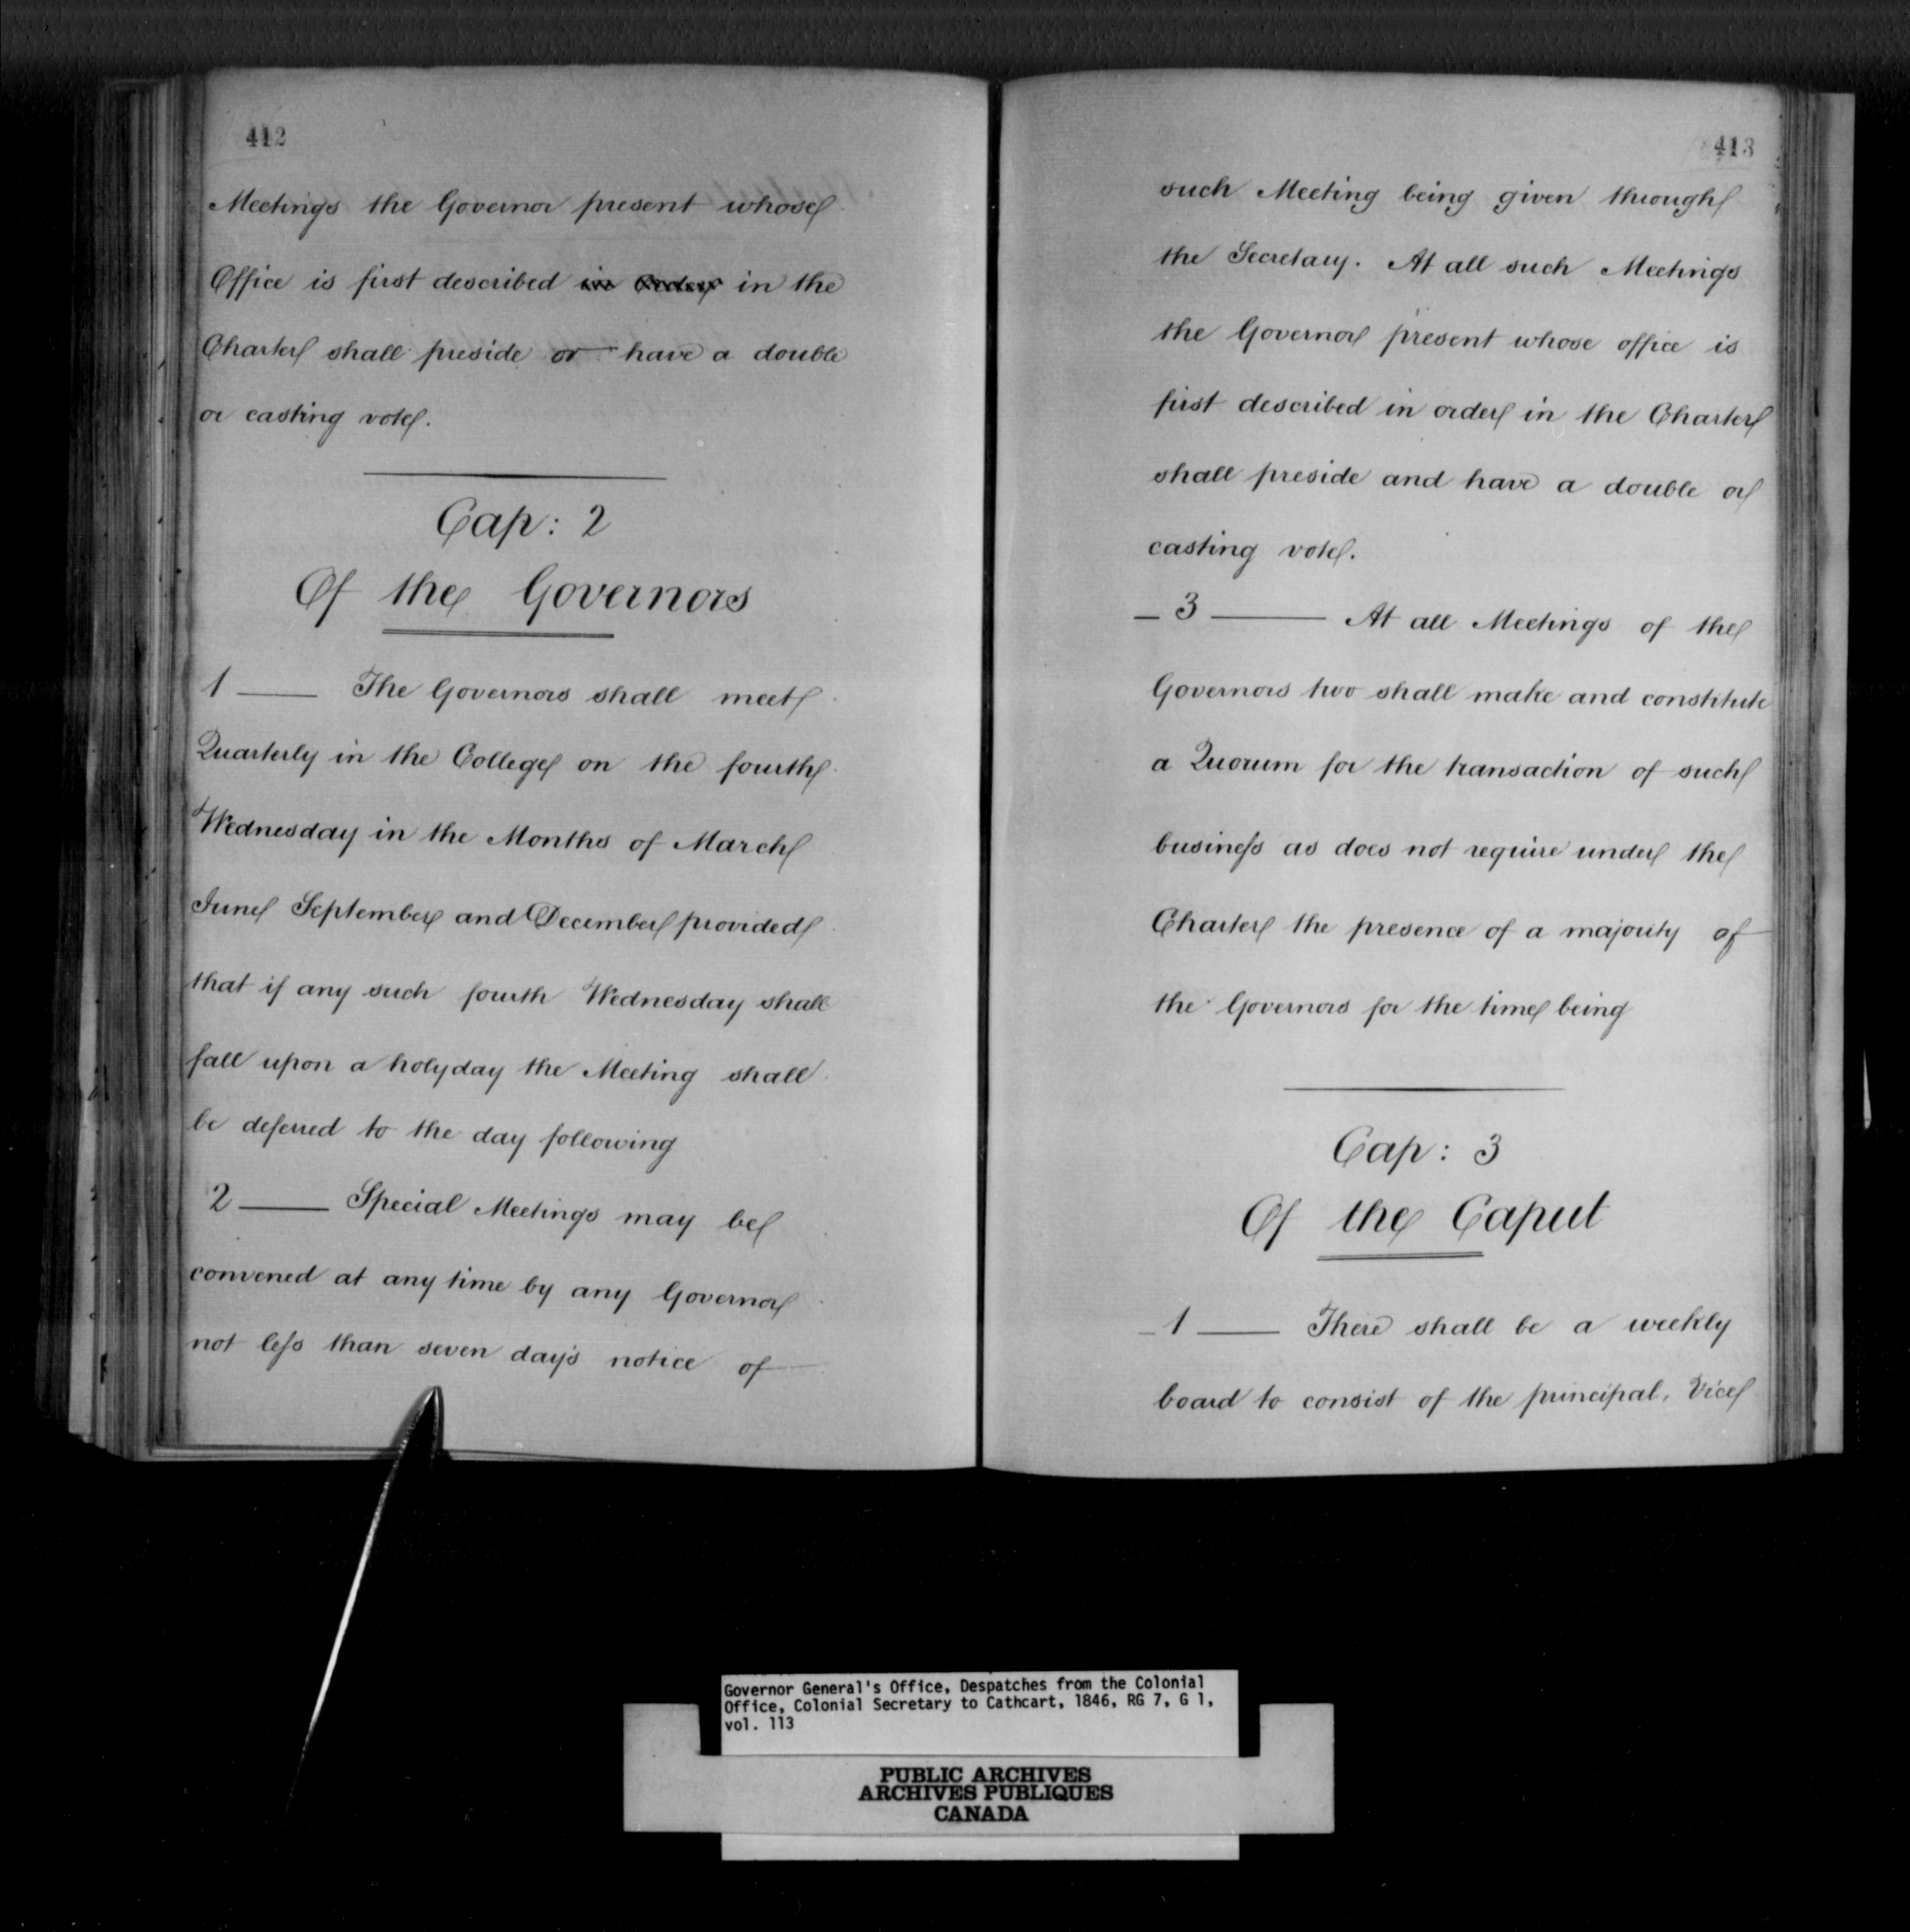 412
Meetings the Governor present whose
Office is first described in Order in the
Charter shall preside or have a double
or casting vote.
Cap: 2
Of the Governors
1 —— The Governors shall meet
Quarterly in the College on the fourth
Wednesday in the Months of March
June September and December provided
that if any such fourth Wednesday shall
fall upon a holyday the Meeting shall
be deferred to the day following
2 —— Special Meetings may be
convened at any time by any Governor
not less than seven day's notice of
413
such Meeting being given through
the Secretary. At all such Meetings
the Governor present whose office is
first described in order in the Charter
shall preside and have a double or
casting vote.
— 3 —— At all Meetings of the
Governors two shall make and constitute
a Quorum for the transaction of such
business as does not require under the
Charter the presence of a majority of
the Governors for the time being
Cap: 3
Of the Caput
— 1 —— There shall be a weekly
board to consist of the principal, Vice
Governor General's Office, Despatches from the Colonial
Office, Colonial Secretary to Cathcart, 1846, RG 7, G 1,
vol. 113
PUBLIC ARCHIVES
ARCHIVES PUBLIQUES
CANADA